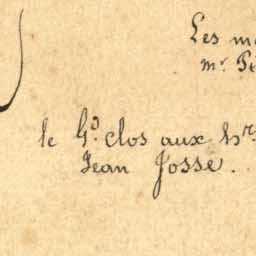 Les
mr
le Gd clos aux hrs
Jean Josse.